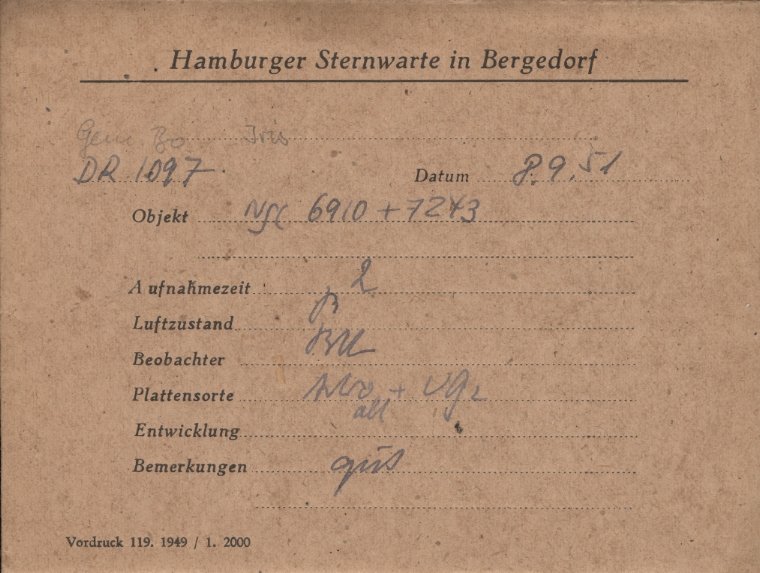 Hamburger Sternwarte in Bergedorf
Iris
DR 1097 Datum 8.9.51
Objekt NGC 6910 + 7243
Aufnahmezeit 2
Luftzustand
Beobachter
Plattensorte
Entwicklung
Bemerkungen gut
Vordruck 119. 1949 / 1. 2000